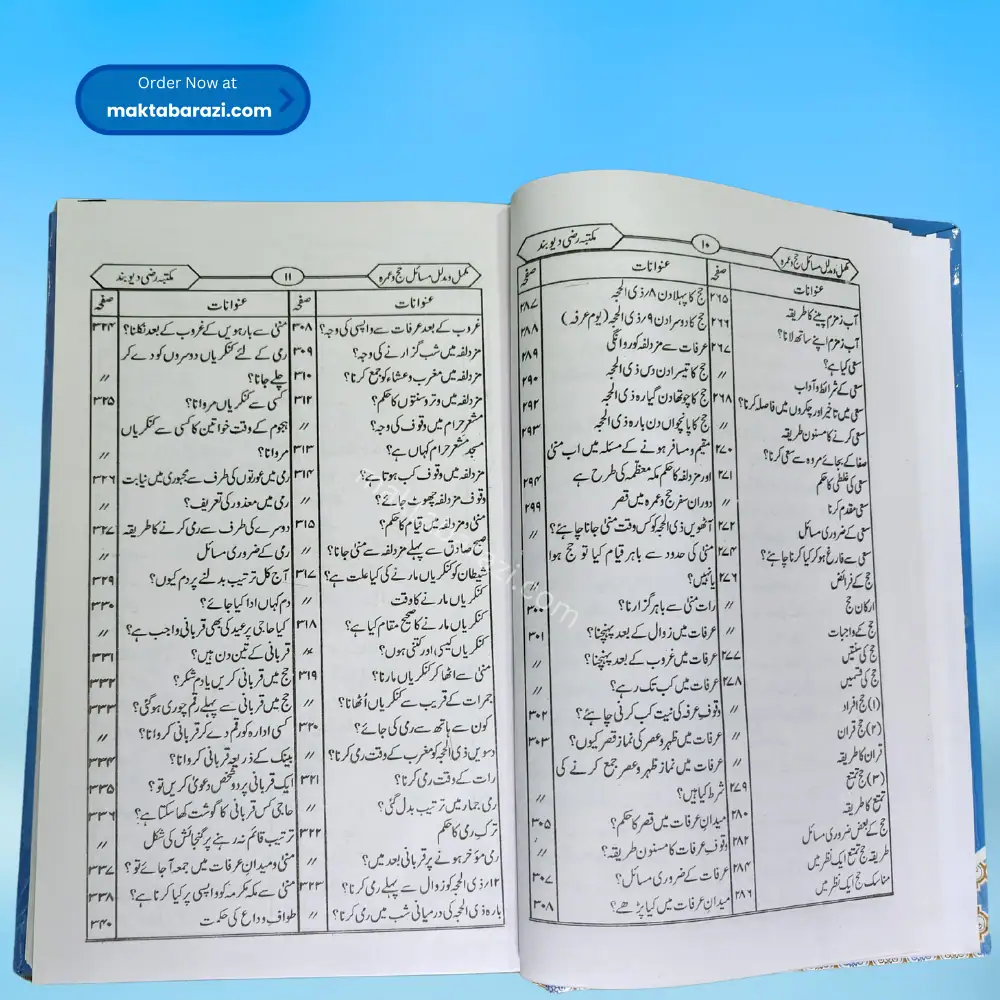 Order Now at
maktabarazi.com
مکمل و مدلل مسائل حج و عمرہ ۱۰ مکتبہ رضی دیوبند
عنوانات صفحہ
آب زمزم پینے کا طریقہ ۲۶۵
آب زمزم اپنے ساتھ لانا؟ ۲۶۶
سعی کیا ہے؟ ۲۶۷
سعی کے شرائط و آداب 〃
سعی میں تاخیر اور چکروں میں فاصلہ کرنا؟ ۲۶۸
سعی کرنے کا مسنون طریقہ 〃
صفا کے بجائے مروہ سے سعی کرنا؟ ۲۷۰
سعی کی غلطی کا حکم ۲۷۱
سعی مقدم کرنا 〃
سعی کے ضروری مسائل ۲۷۲
سعی سے فارغ ہو کر کیا کرنا چاہئے؟ ۲۷۴
حج کے فرائض ۲۷۶
ارکان حج 〃
حج کے واجبات 〃
حج کی سنتیں ۲۷۷
حج کی قسمیں ۲۷۸
(۱) حج افراد 〃
(۲) حج قران 〃
قران کا طریقہ 〃
(۳) حج تمتع ۲۷۹
تمتع کا طریقہ ۲۸۰
حج کے بعض ضروری مسائل ۲۸۲
طریقہ حج تمتع ایک نظر میں ۲۸۴
مناسک حج ایک نظر میں ۲۸۶
عنوانات صفحہ
حج کا پہلا دن ۸/ ذی الحجہ ۲۸۷
حج کا دوسرا دن ۹/ ذی الحجہ (یوم عرفہ) ۲۸۸
عرفات سے مزدلفہ کو روانگی ۲۸۹
حج کا تیسرا دن دس ذی الحجہ ۲۹۰
حج کا چوتھا دن گیارہ ذی الحجہ ۲۹۲
حج کا پانچواں دن بارہ ذی الحجہ ۲۹۳
مقیم و مسافر ہونے کے مسئلہ میں اب منیٰ
اور مزدلفہ کا حکم مکہ معظمہ کی طرح ہے ۲۹۴
دوران سفر حج و عمرہ میں قصر ۲۹۹
آٹھویں ذی الحجہ کو کس وقت منیٰ جانا چاہئے؟ 〃
منیٰ کی حدود سے باہر قیام کیا تو حج ہوا
یا نہیں؟ 〃
رات منیٰ سے باہر گزارنا؟
عرفات میں زوال کے بعد پہنچنا؟ ۳۰۱
عرفات میں غروب کے بعد پہنچنا؟
عرفات میں کب تک رہے؟ 〃
وقوف عرفہ کی نیت کب کرنی چاہئے؟ ۳۰۲
عرفات میں ظہر و عصر کی نماز قصر کیوں؟ ۳۰۳
عرفات میں نماز ظہر و عصر جمع کرنے کی
شرط کیا ہیں؟ 〃
میدان عرفات میں قصر کا حکم؟ ۳۰۵
وقوف عرفات کا مسنون طریقہ؟ 〃
عرفات کے ضروری مسائل؟ ۳۰۷
میدان عرفات میں کیا پڑھے؟ ۳۰۸
مکمل و مدلل مسائل حج و عمرہ ۱۱ مکتبہ رضی دیوبند
عنوانات صفحہ
غروب کے بعد عرفات سے واپسی کی وجہ؟ ۳۰۸
مزدلفہ میں شب گزارنے کی وجہ؟ ۳۰۹
مزدلفہ میں مغرب و عشاء کو جمع کرنا؟ ۳۱۰
مزدلفہ میں وتر و سنتوں کا حکم؟ ۳۱۲
مشعر حرام میں وقوف کی وجہ؟ 〃
مسجد مشعر حرام کہاں ہے؟ ۳۱۳
مزدلفہ میں وقوف کب ہوتا ہے؟ ۳۱۴
وقوف مزدلفہ چھوٹ جائے؟ 〃
منیٰ و مزدلفہ میں قیام کا حکم؟ ۳۱۵
صبح صادق سے پہلے مزدلفہ سے منیٰ جانا؟ 〃
شیطان کو کنکریاں مارنے کی کیا علت ہے؟ ۳۱۷
کنکریاں مارنے کا وقت 〃
کنکریاں مارنے کا صحیح مقام کیا ہے؟ ۳۱۸
کنکریاں کیسی اور کتنی ہوں؟ 〃
منیٰ سے اٹھا کر کنکریاں مارنا؟ ۳۱۹
جمرات کے قریب سے کنکریاں اُٹھانا؟ 〃
کون سے ہاتھ سے رمی کی جائے؟ ۳۲۰
دسویں ذی الحجہ کو مغرب کے وقت رمی کرنا؟ 〃
رات کے وقت رمی کرنا؟ ۳۲۱
رمی جمار میں ترتیب بدل گئی؟ 〃
ترک رمی کا حکم ۳۲۲
رمی مؤخر ہونے پر قربانی بعد میں؟ 〃
۱۲/ ذی الحجہ کو زوال سے پہلے رمی کرنا؟ ۳۲۳
بارہ ذی الحجہ کی درمیانی شب میں رمی کرنا؟ 〃
عنوانات صفحہ
منیٰ سے بارہویں کے غروب کے بعد نکلنا؟ ۳۲۴
رمی کے لئے کنکریاں دوسروں کو دے کر
چلے جانا؟ 〃
کسی سے کنکریاں مروانا؟ ۳۲۵
ہجوم کے وقت خواتین کا کسی سے کنکریاں
مروانا؟ 〃
رمی میں عورتوں کی طرف سے مجبوری میں نیابت ۳۲۶
رمی میں معذور کی تعریف؟ 〃
دوسرے کی طرف سے رمی کرنے کا طریقہ ۳۲۷
رمی کے ضروری مسائل 〃
آج کل ترتیب بدلنے پر دم کیوں؟ ۳۲۹
دم کہاں ادا کیا جائے؟ ۳۳۰
کیا حاجی پر عید کی بھی قربانی واجب ہے؟ 〃
قربانی کے تین دن ہیں؟ ۳۳۱
حج میں قربانی کریں یا دم شکر؟ ۳۳۲
حج میں قربانی سے پہلے رقم چوری ہو گئی؟ ۳۳۳
کسی ادارہ کو رقم دے کر قربانی کروانا؟ 〃
بینک کے ذریعہ قربانی کروانا؟ ۳۳۴
ایک قربانی پر دو شخص دعویٰ کریں تو؟ ۳۳۵
حاجی کس قربانی کا گوشت کھا سکتا ہے؟ ۳۳۶
ترتیب قائم نہ رہنے پر گنجائش کی شکل 〃
منیٰ و میدان عرفات میں جمعہ آجائے تو؟ ۳۳۷
منیٰ سے مکہ مکرمہ کو واپسی پر کیا کرنا ہے؟ ۳۳۸
طواف وداع کی حکمت ۳۴۰